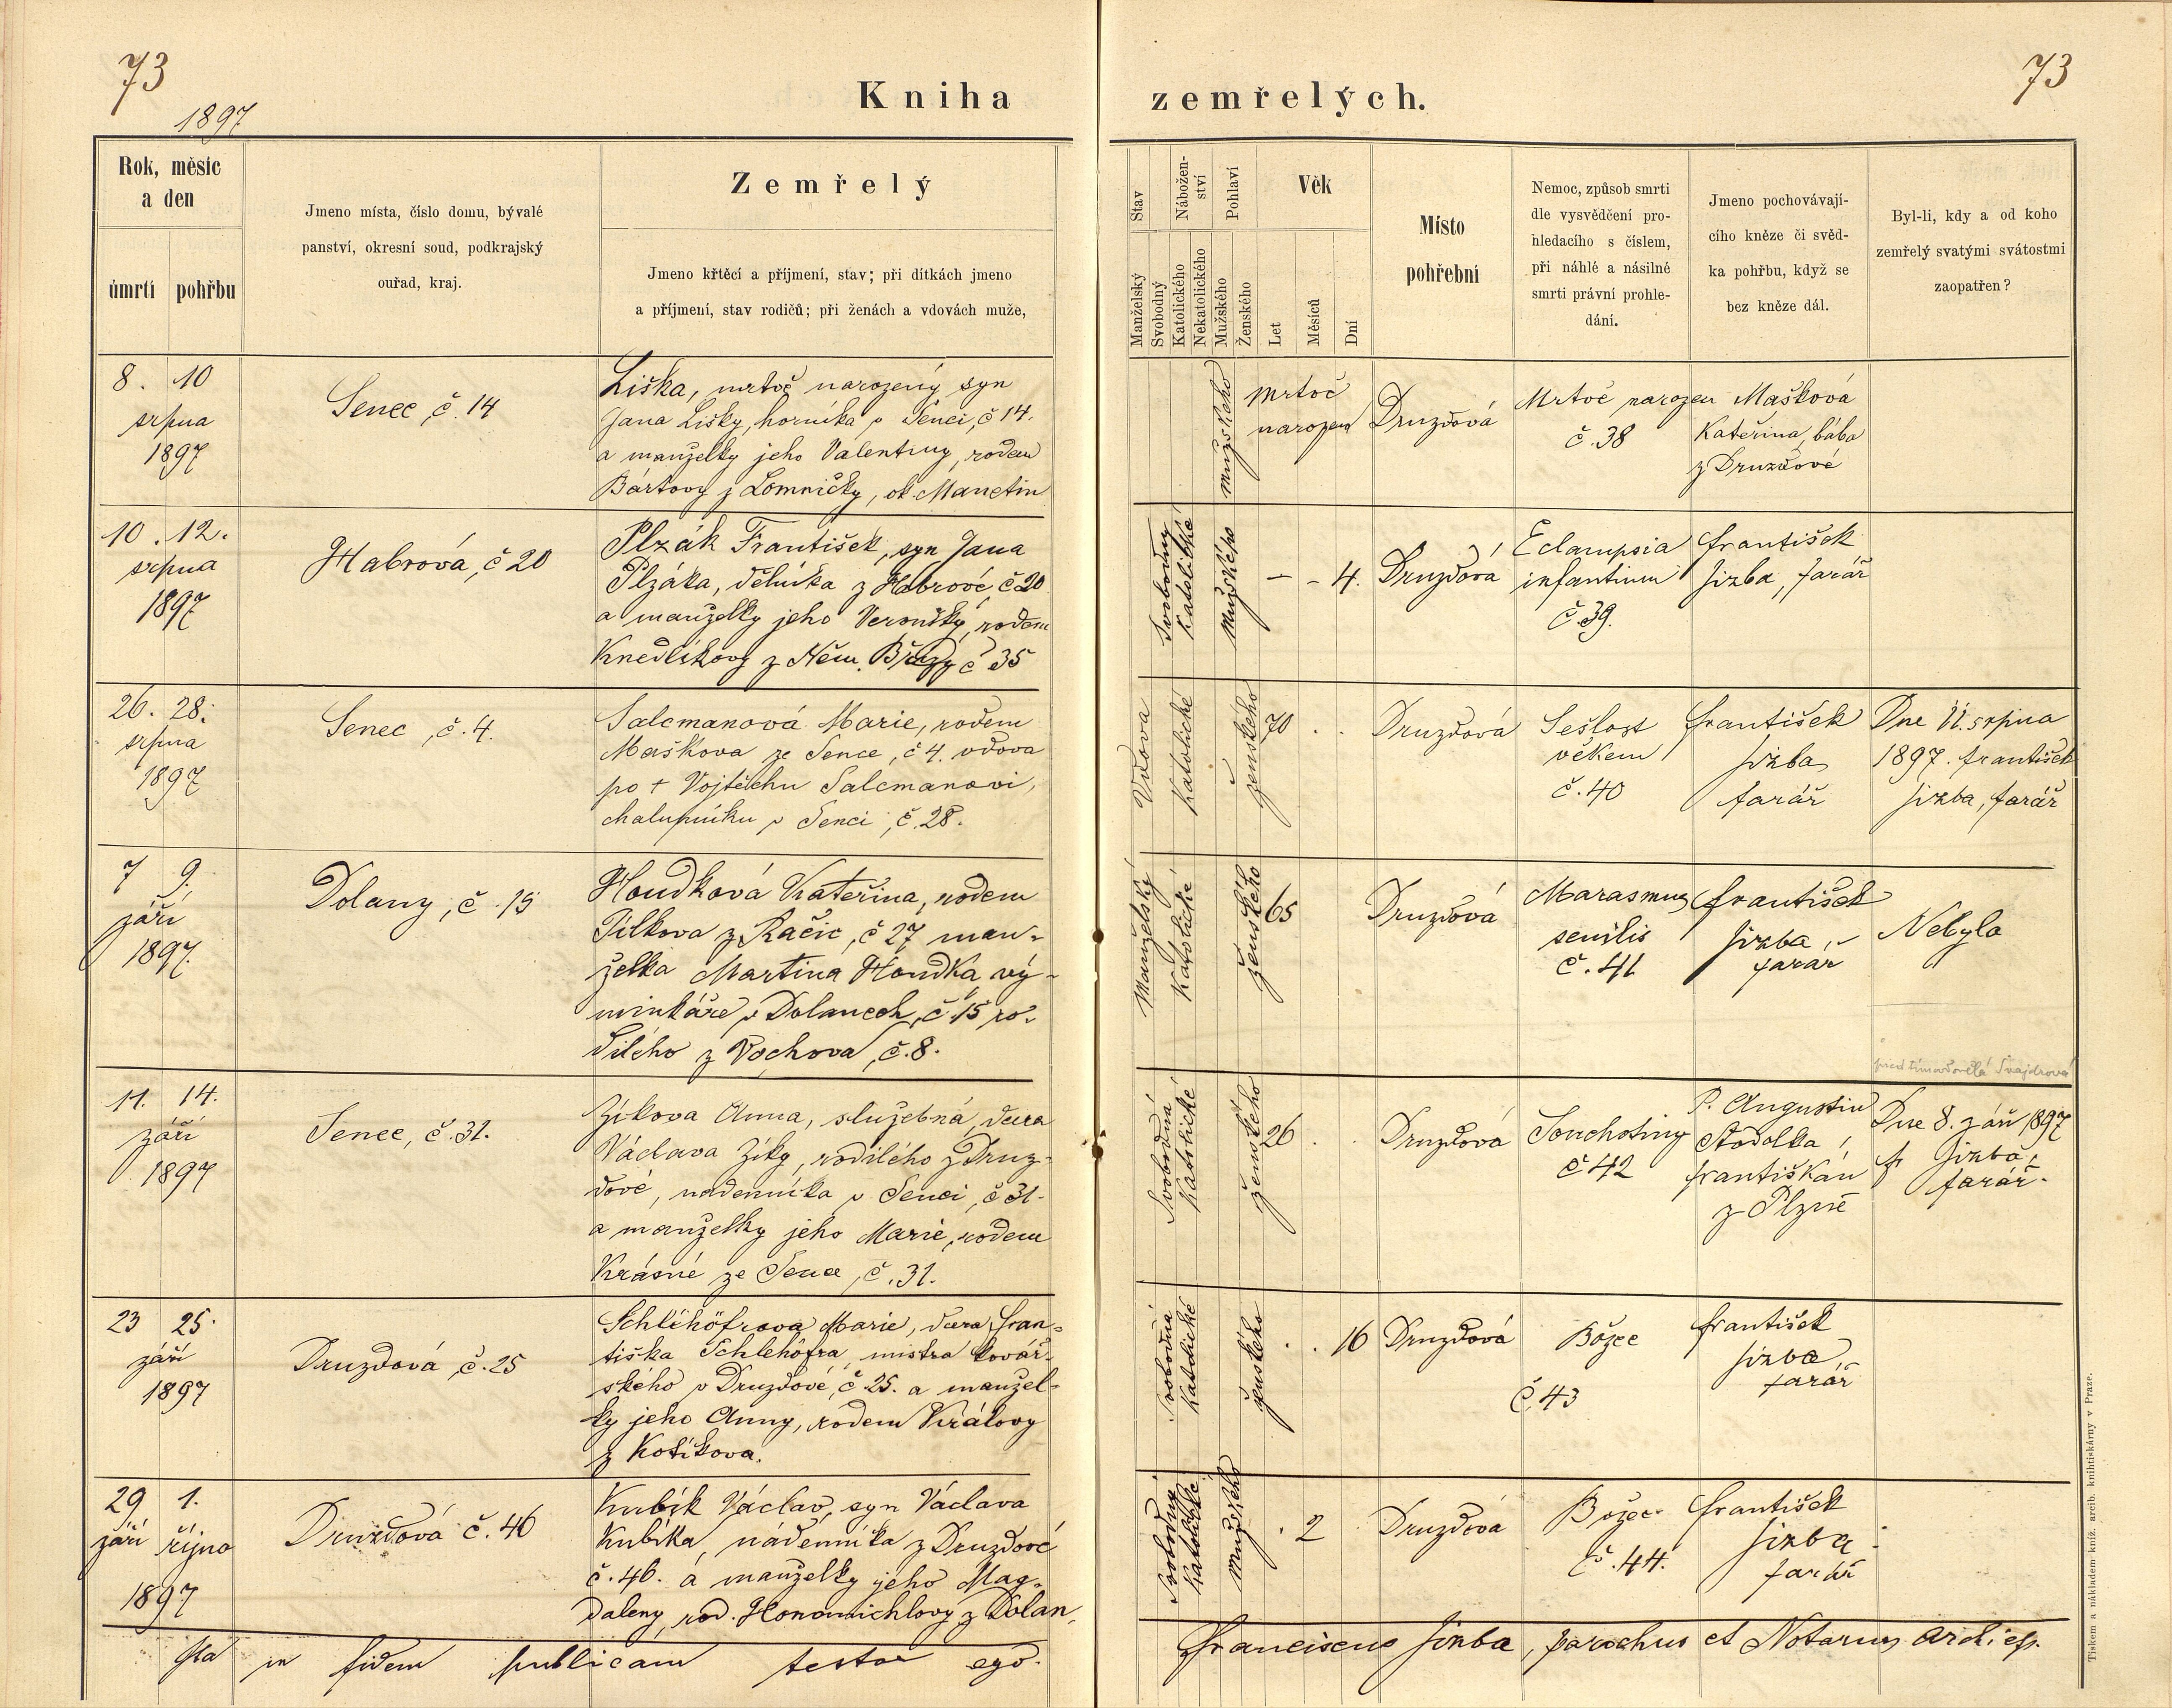 73
1897
Kniha
zemřelých.
73
Rok, měsíc
a den
úmrtí
pohřbu
Jmeno místa, číslo domu, bývalé
panství, okresní soud, podkrajský
ouřad, kraj.
Zemřelý
Jmeno křtěcí a příjmení, stav; při dítkách jmeno
a příjmení, stav rodičů; při ženách a vdovách muže,
Stav
Manželský
Svobodný
Nábožen-
ství
Katolického
Nekatolického
Pohlaví
Mužského
Ženského
Věk
Let
Měsíců
Dní
Místo
pohřební
Nemoc, způsob smrti
dle vysvědčení pro-
hledacího s číslem,
při náhlé a násilné
smrti právní prohle-
dání.
Jmeno pochovávají-
cího kněze či svěd-
ka pohřbu, když se
bez kněze dál.
Byl-li, kdy a od koho
zemřelý svatými svátostmi
zaopatřen?
8. 10
srpna
1897
Senec, č. 14
Liška, mrtvě narozený syn
Jana Lišky, horníka v Senci, č 14.
a manželky jeho Valentiny, rodem
Bártovy z Lomničky, ok. Manetín
mužského
Mrtvě
narozen
Druzdová
Mrtvě narozen
č. 38
Mašková
Kateřina, bába
z Druzdové
10. 12.
srpna
1897
Habrová, č 20
Plzák František, syn Jana
Plzáka, dělníka z Habrové, č 20
a manželky jeho Veroniky, rodem
Knedlíkovy z Něm. Břízy č 35
Svobodný
Katolické
Mužského
– – 4.
Druzdová
Eclampsia
infantium
č. 39.
František
Jizba, farář
26. 28.
srpna
1897
Senec, č. 4.
Salcmanová Marie, rodem
Maškova ze Sence, č 4. vdova
po + Vojtěchu Salcmanovi,
chalupníku v Senci, č. 28.
Vdova
Katolické
ženského
70 . .
Druzdová
Sešlost
věkem
č. 40
František
Jizba
farář
Dne 11. srpna
1897. František
Jizba, farář
7 9.
září
1897.
Dolany, č. 15
Houdková Kateřina, rodem
Pilkova z Račic, č 27 man-
želka Martina Houdka, vý-
minkáře v Dolanech, č 15 ro-
dilého z Vochova, č. 8.
Manželský
Katolické
ženského
65
Druzdová
Marasmus
senilis
č. 41
František
Jizba,
farář
Nebyla
Švajdrová
11. 14.
září
1897
Senec, č. 31.
Zíkova Anna, služebná, dcera
Václava Zíky, rodilého z Druz-
dové, nadenníka v Senci, č 31.
a manželky jeho Marie, rodem
Krásné ze Sence, č. 31.
Svobodná
Katolické
ženského
26 . .
Druzdová
Souchotiny
č 42
P. Augustin
Stodolka,
františkán
z Plzně
Dne 8. září 1897
Fr. Jizba,
farář.
23 25.
září
1897
Druzdová, č. 25
Schlehöfrova Marie, dcera Fran-
tiška Schlehöfra, mistra kovář-
ského v Druzdové, č 25. a manžel-
ky jeho Anny, rodem Královy
z Kotíkova.
Svobodná
Katolické
ženského
. . 16
Druzdová
Božec
č 43
František
Jizba,
farář
29 1.
září října
1897
Druzdová č. 46
Kubík Václav, syn Václava
Kubíka, nádenníka z Druzdové
č. 46. a manželky jeho Mag-
daleny, rod. Honomichlovy z Dolan.
Svobodný
Katolické
Mužského
. 2
Druzdová
Božec
č. 44.
František
Jizba
farář
Ita in fidem publicam testor ego.
Franciscus Jizba, parochus et Notarius archiep.
Tiskem a nákladem kníž. arcib. knihtiskárny v Praze.